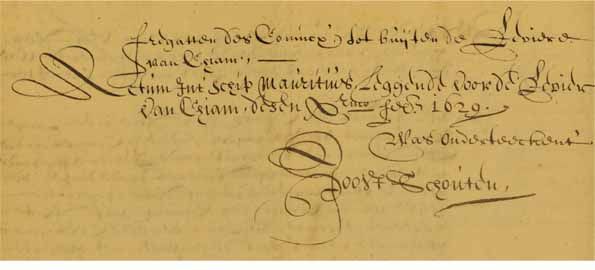 fregatten des Conincx, tot buijten de Reviere
van Chiam,
Actum Int schip Mauritius, Leggende voor de Revier
van Chiam, desen Xen feb: 1629.
Was onderteeckent
Joost Schouten,